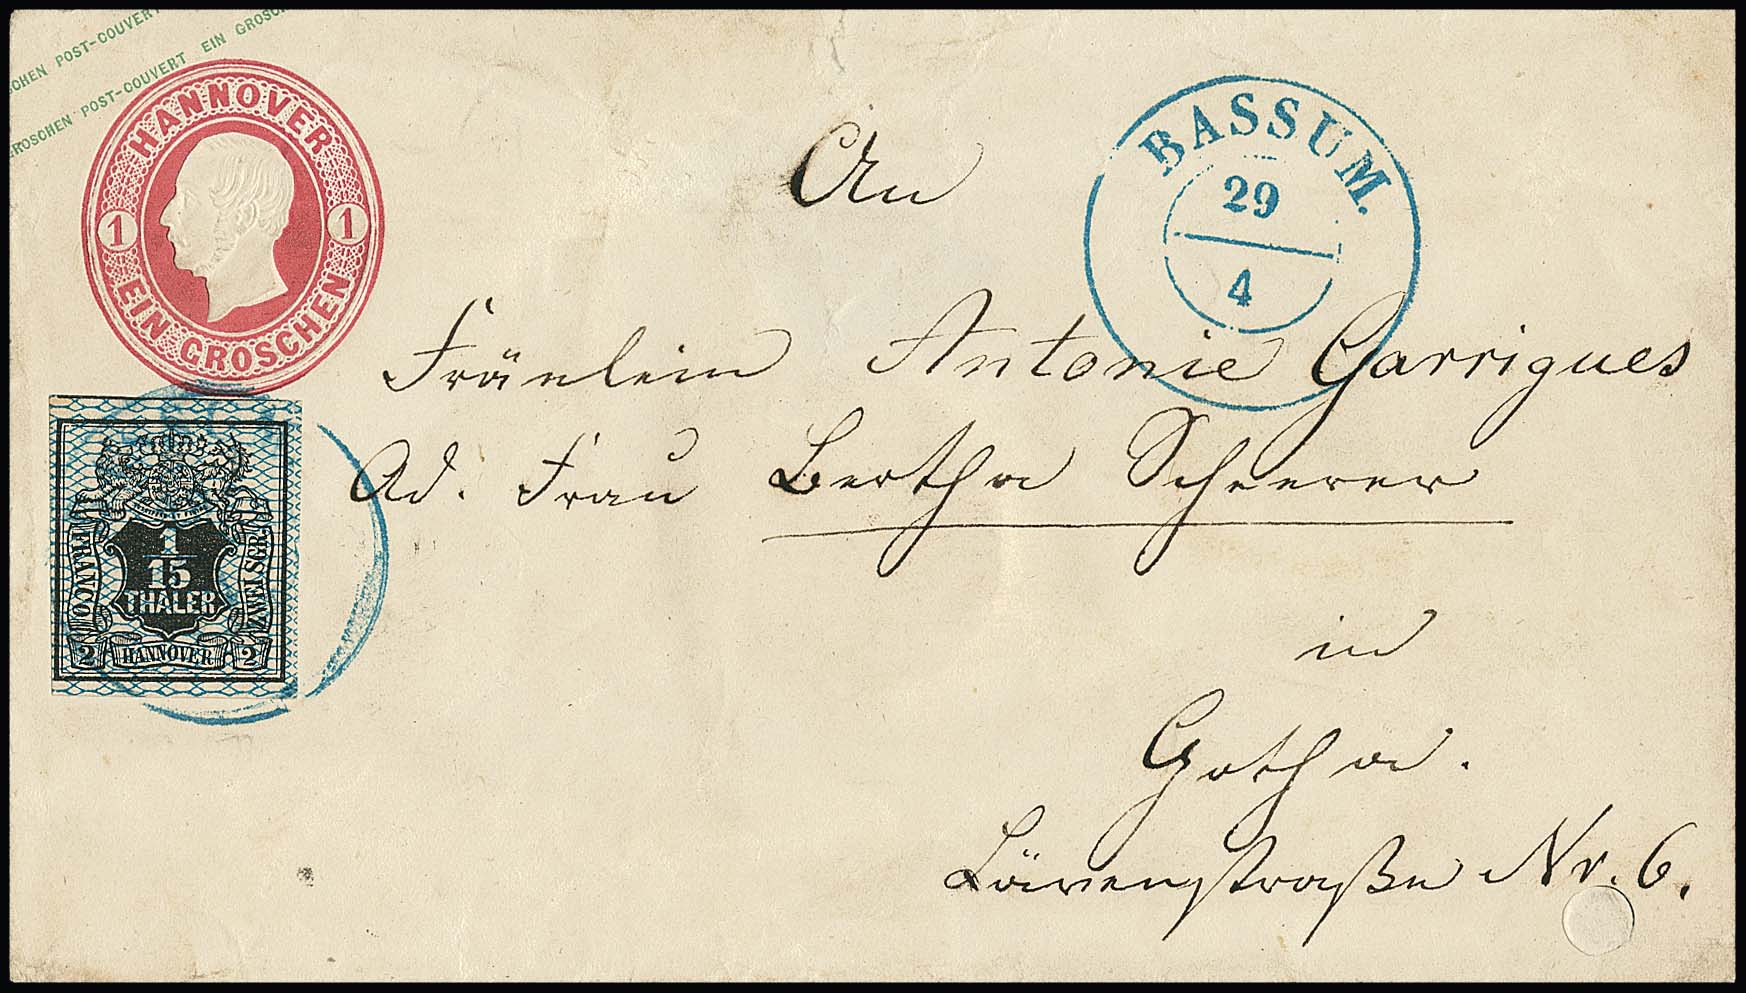 SCHEN POST-COUVERT
GROSCHEN POST-COUVERT EIN GROSCHEN
HANNOVER
1 1
EIN GROSCHEN
BASSUM.
29
4
An
Fräulein Antonie Garrigues
Ad. Frau Bertha Scheerer
in
Gotha.
Löwenstraße Nr. 6.
1
15
THALER
FRANCO
ZWEI SGR.
2 HANNOVER 2